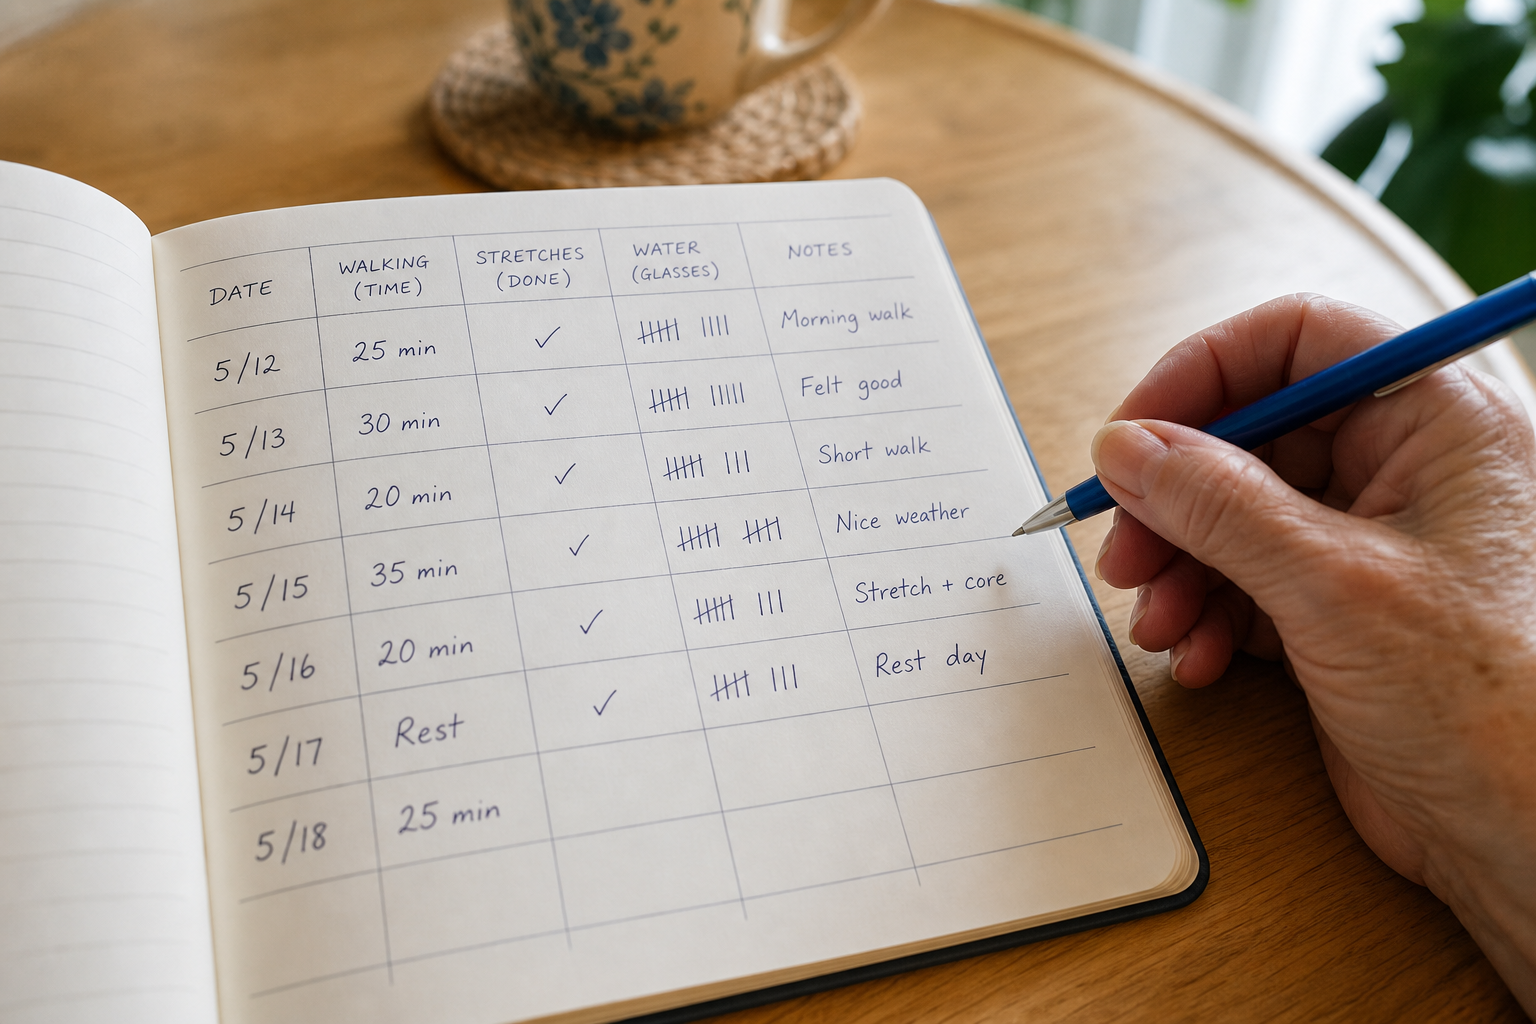 DATE
WALKING
(TIME)
STRETCHES
(DONE)
WATER
(GLASSES)
NOTES
5/12 25 min ✓ 卌 |||| Morning walk
5/13 30 min ✓ 卌 ||||| Felt good
5/14 20 min ✓ 卌 ||| Short walk
5/15 35 min ✓ 卌 卌 Nice weather
5/16 20 min ✓ 卌 ||| Stretch + core
5/17 Rest ✓ 卌 ||| Rest day
5/18 25 min